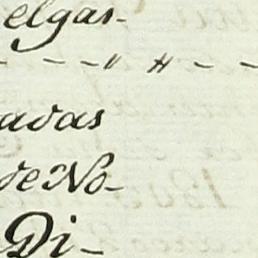 elgas-
- - - " # - -
adas
de No-
Di-